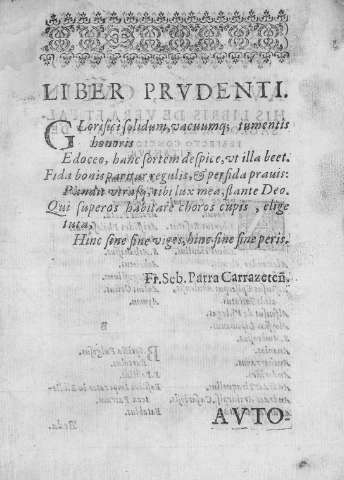 LIBER PRVDENTI.
GLorifici solidum, vacuumq; tumentis
honoris
Edoceo, hanc sortem despice, vt illa beet.
Fida bonis partur regulis, & perfida prauis:
Pandit vtrasq, tibi lux mea, stante Deo.
Qui superos habitare choros cupis, elige
tuta,
Hinc sine fine viges, hinc sine fine peris.
Fr. Seb. Parra Carrazeteñ.
AVTO-